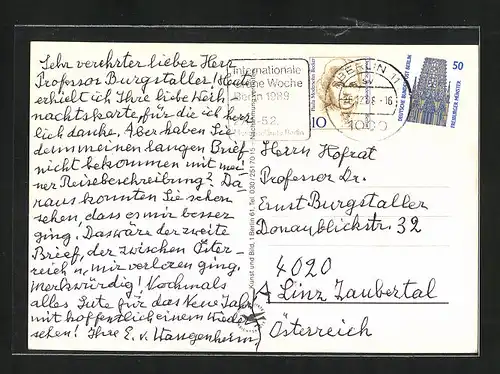 Sehr verehrter lieber Herr
Professor Burgstaller! Heute
erhielt ich Ihre liebe Weih-
nachtskarte, für die ich herz-
lich danke. Aber haben Sie
denn meinen langen Brief
nicht bekommen mit mei-
ner Reisebeschreibung? Da
raus konnten Sie schon
sehen, dass es mir besser
ging. Das wäre der zweite
Brief, der zwischen Öster-
reich u. mir verloren ging,
merkwürdig! Nochmals
alles Gute für das Neue Jahr
mit hoffentlich einem Wieder-
sehen! Ihre E. v. Wangenheim
Internationale
Grüne Woche
Berlin 1989
10
BERLIN 11
-16
1000
50
DEUTSCHE BUNDESPOST BERLIN
FREIBURGER MÜNSTER
Herrn Hofrat
Professor Dr.
Ernst Burgstaller
Donaublickstr. 32
4020
A Linz Zaubertal
Österreich